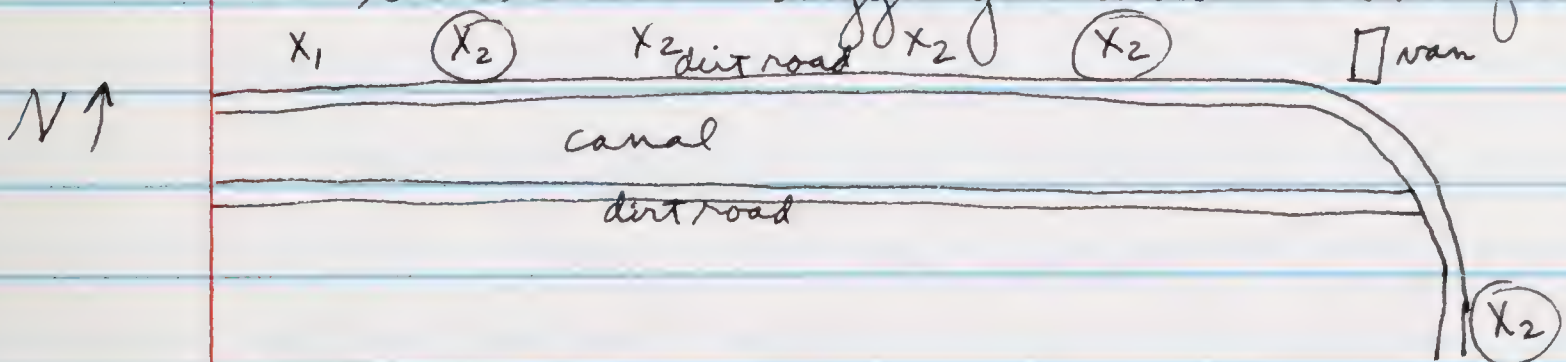 X₁ X₂ X₂ dirt road X₂ X₂ van
N↑
canal
dirt road
X₂